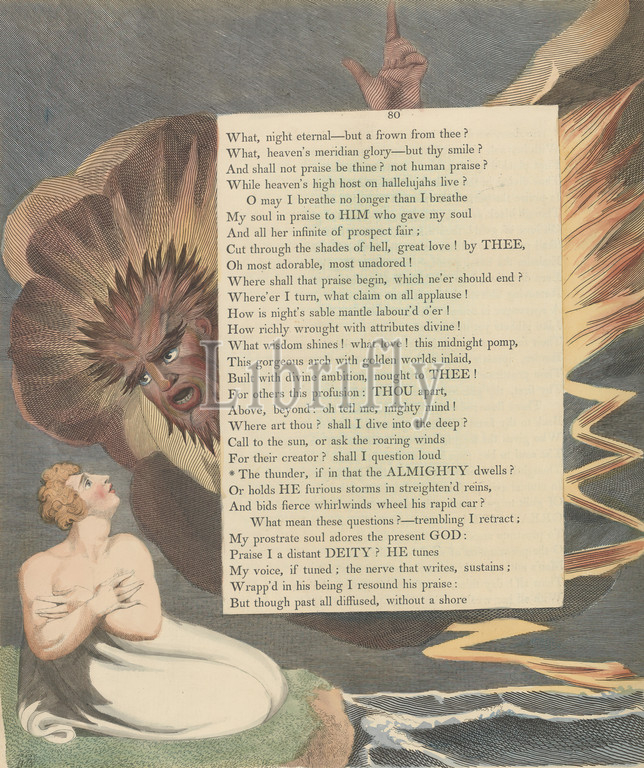 80
What, night eternal—but a frown from thee?
What, heaven's meridian glory—but thy smile?
And shall not praise be thine? not human praise?
While heaven's high host on hallelujahs live?
O may I breathe no longer than I breathe
My soul in praise to HIM who gave my soul
And all her infinite of prospect fair;
Cut through the shades of hell, great love! by THEE,
Oh most adorable, most unadored!
Where shall that praise begin, which ne'er should end?
Where'er I turn, what claim on all applause!
How is night's sable mantle labour'd o'er!
How richly wrought with attributes divine!
What wisdom shines! what love! this midnight pomp,
This gorgeous arch with golden worlds inlaid,
Built with divine ambition, nought to THEE!
For others this profusion: THOU apart,
Above, beyond: oh tell me, mighty mind!
Where art thou? shall I dive into the deep?
Call to the sun, or ask the roaring winds
For their creator? shall I question loud
* The thunder, if in that the ALMIGHTY dwells?
Or holds HE furious storms in streighten'd reins,
And bids fierce whirlwinds wheel his rapid car?
What mean these questions?—trembling I retract;
My prostrate soul adores the present GOD:
Praise I a distant DEITY? HE tunes
My voice, if tuned; the nerve that writes, sustains;
Wrapp'd in his being I resound his praise:
But though past all diffused, without a shore
Librifly